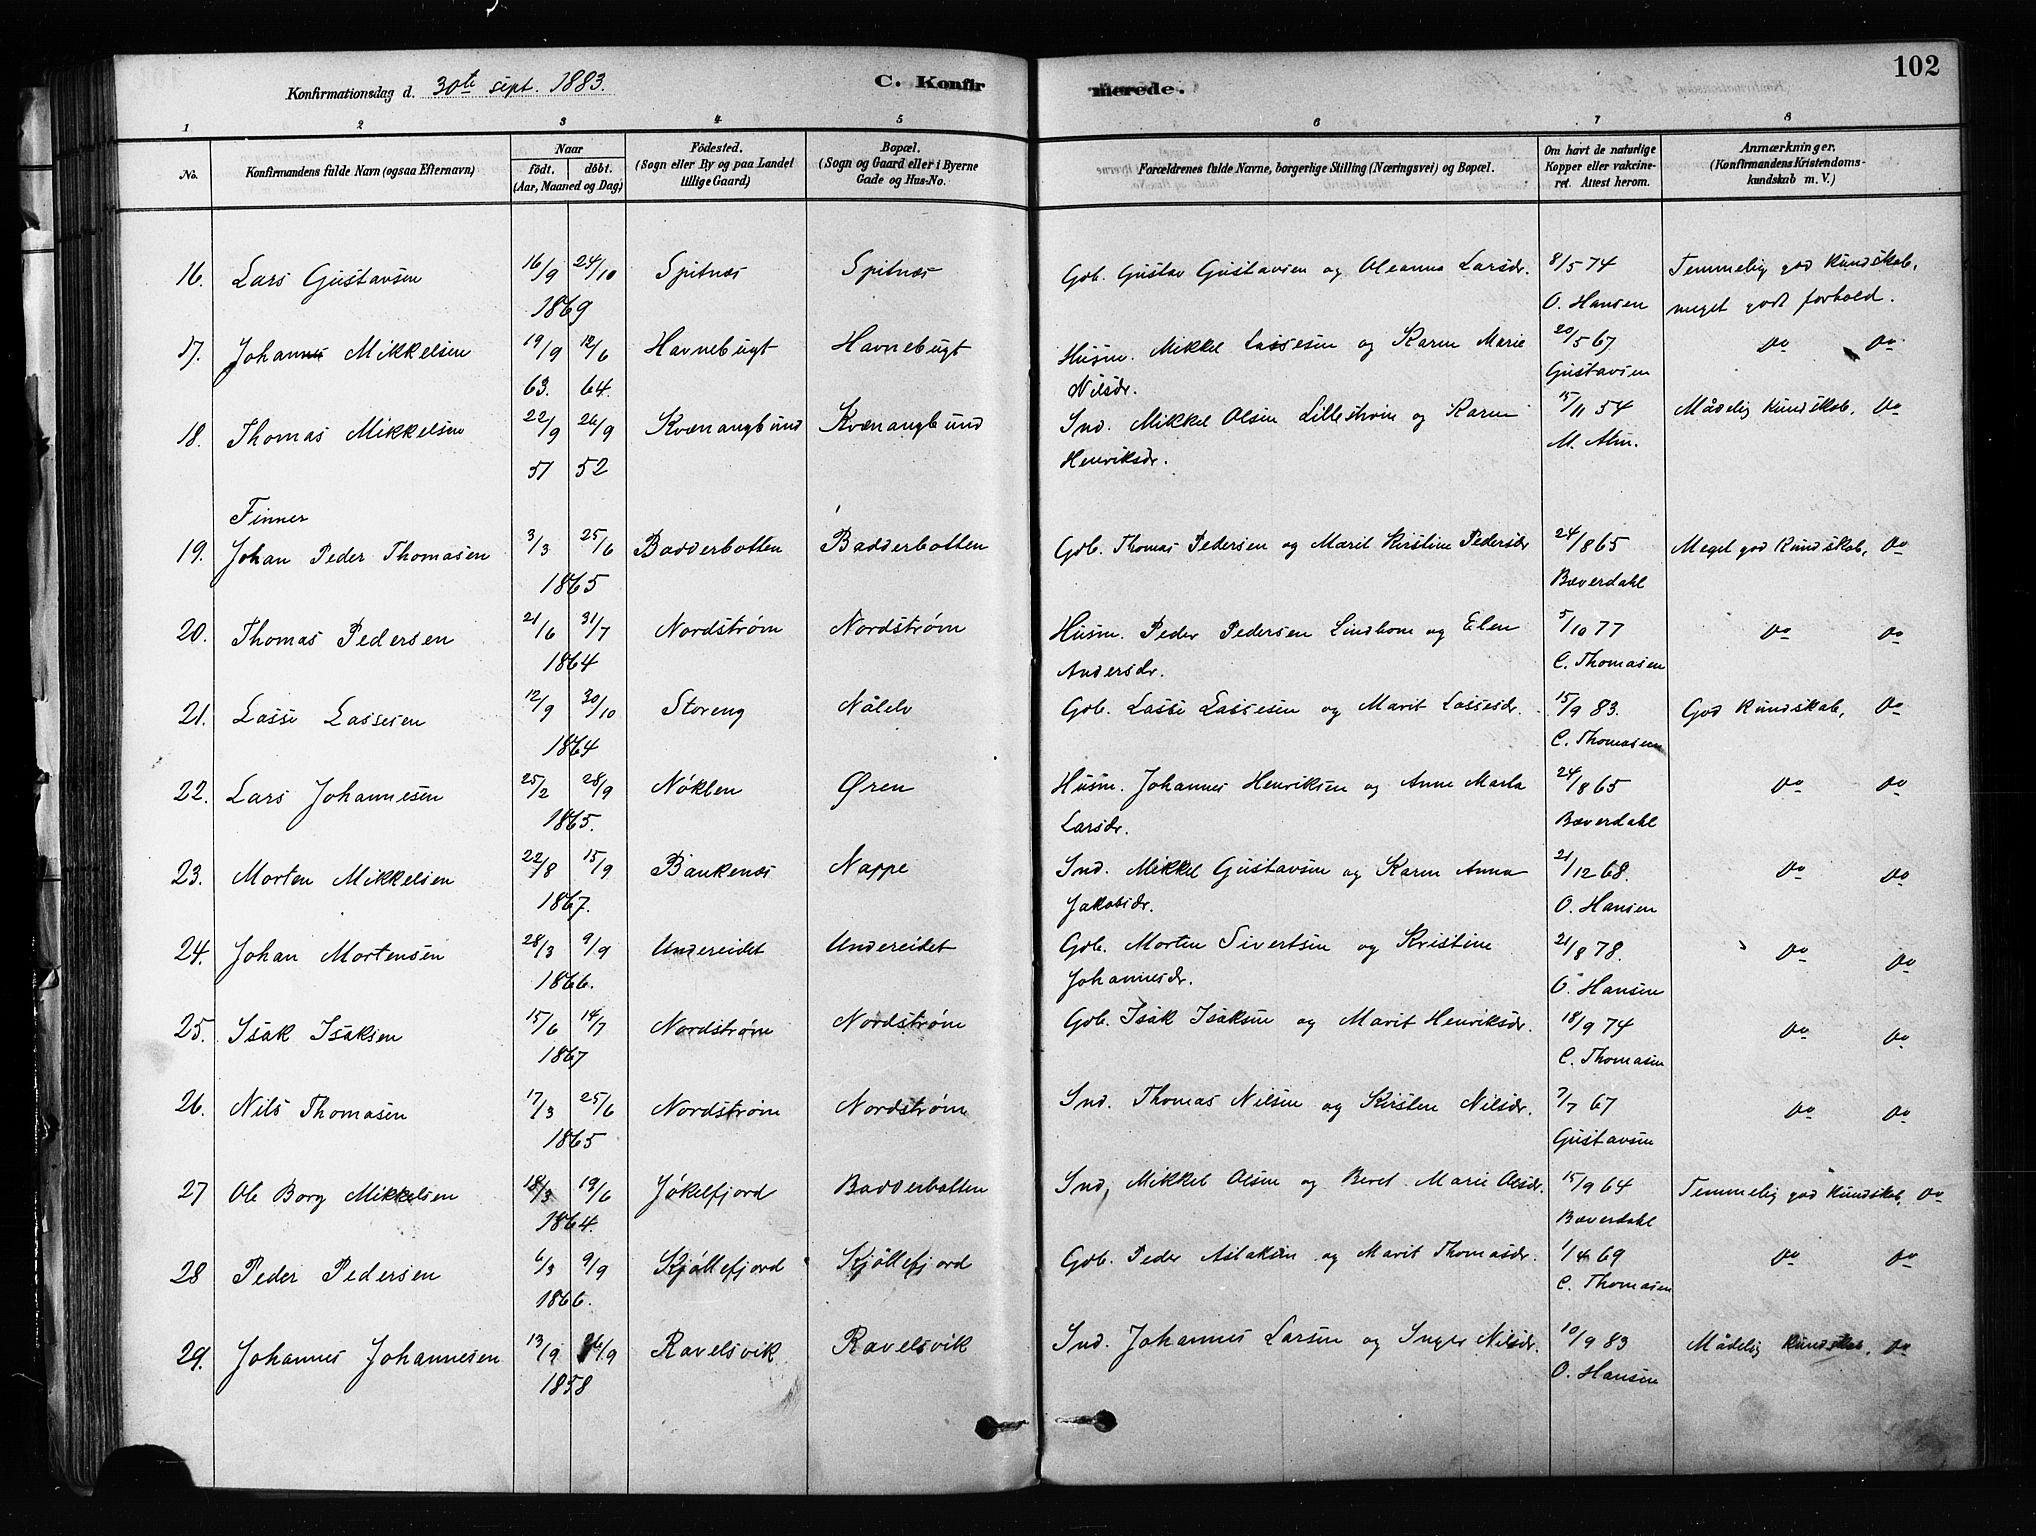 102
Konfirmationsdag d. 30te sept. 1883.
C. Konfirmerede.
1 2 3 4 5 6 7 8
No.
Konfirmandens fulde Navn (ogsaa Efternavn)
Naar
födt. döbt.
(Aar, Maaned og Dag)
Födested.
(Sogn eller By og paa Landet
tillige Gaard)
Bopæl.
(Sogn og Gaard eller i Byerne
Gade og Hus-No.
Forældrenes fulde Navne, borgerlige Stilling (Næringsvei) og Bopæl.
Om havt de naturlige
Kopper eller vakcine-
ret. Attest herom.
Anmærkninger.
(Konfirmandens Kristendoms-
kundskab m. V.)
16. Lars Gustavsen 16/9 24/10 Spitnæs Spitnæs Gdb. Gustav Gustavsen og Oleanna Larsdr. 8/5 74 Temmelig god Kundskab,
1869 O. Hansen meget godt forhold.
17. Johannes Mikkelsen 19/9 12/6 Havnebugt Havnebugt Husm. Mikkel Lassesen og Karen Marie 20/5 67 do do
63. 64. Nilsdr. Gustavsen
18. Thomas Mikkelsen 22/9 26/9 Kvænangbund Kvænangbund Ind. Mikkel Olsen Lillestrøm og Karen 15/11 54 Mådelig Kundskab, do
51 52 Henriksdr. M. Alm.
Finner
19. Johan Peder Thomasen 3/3 25/6 Badderbotten Badderbotten Gdb. Thomas Pedersen og Marit Kirstine Pedersdr 24/8 65 Meget god Kundskab, do
1865 Bæverdahl
20. Thomas Pedersen 21/6 31/7 Nordstrøm Nordstrøm Husm. Peder Pedersen Lindbom og Elen 5/10 77 do do
1864 Andersdr. C. Thomasen
21. Lasse Lassesen 12/9 30/10 Storeng Nålelv Gdb. Lasse Lassesen og Marit Lassesdr. 15/9 83. God Kundskab, do
1864 C. Thomasen
22. Lars Johannesen 25/2 28/9 Nøklen Øren Husm. Johannes Henriksen og Anne Marta 24/8 65 do do
1865. Larsdr. Bæverdahl
23. Morten Mikkelsen 22/8 15/9 Bankenæs Nappe Ind. Mikkel Gustavsen og Karen Anna 21/12 68. do do
1867. Jakobsdr. O. Hansen
24. Johan Mortensen 28/3 9/9 Undereidet Undereidet Gdb. Morten Sivertsen og Kristine 21/8 78. do do
1866. Johannesdr. O. Hansen
25. Isak Isaksen 15/6 14/7 Nordstrøm Nordstrøm Gdb. Isak Isaksen og Marit Henriksdr. 18/9 74 do do
1867 C. Thomasen
26. Nils Thomasen 17/3 25/6 Nordstrøm Nordstrøm Ind. Thomas Nilsen og Kirsten Nilsdr. 7/7 67 do do
1865 Gustavsen
27 Ole Borg Mikkelsen 18/3 19/6 Jøkelfjord Badderbotten Ind, Mikkel Olsen og Beret Marie Olsdr. 15/9 64 Temmelig god Kundskab, do
1864. Bæverdahl
28 Peder Pedersen 6/3 9/9 Skjøllefjord Skjøllefjord Gdb. Peder Aslaksen og Marit Thomasdr. 1/4 69 do do
1866. C. Thomasen
29. Johannes Johannesen 13/9 26/9 Ravelsvik Ravelsvik Ind. Johannes Larsen og Inger Nilsdr. 10/9 83 Mådelig Kundskab, do
1858 O. Hansen